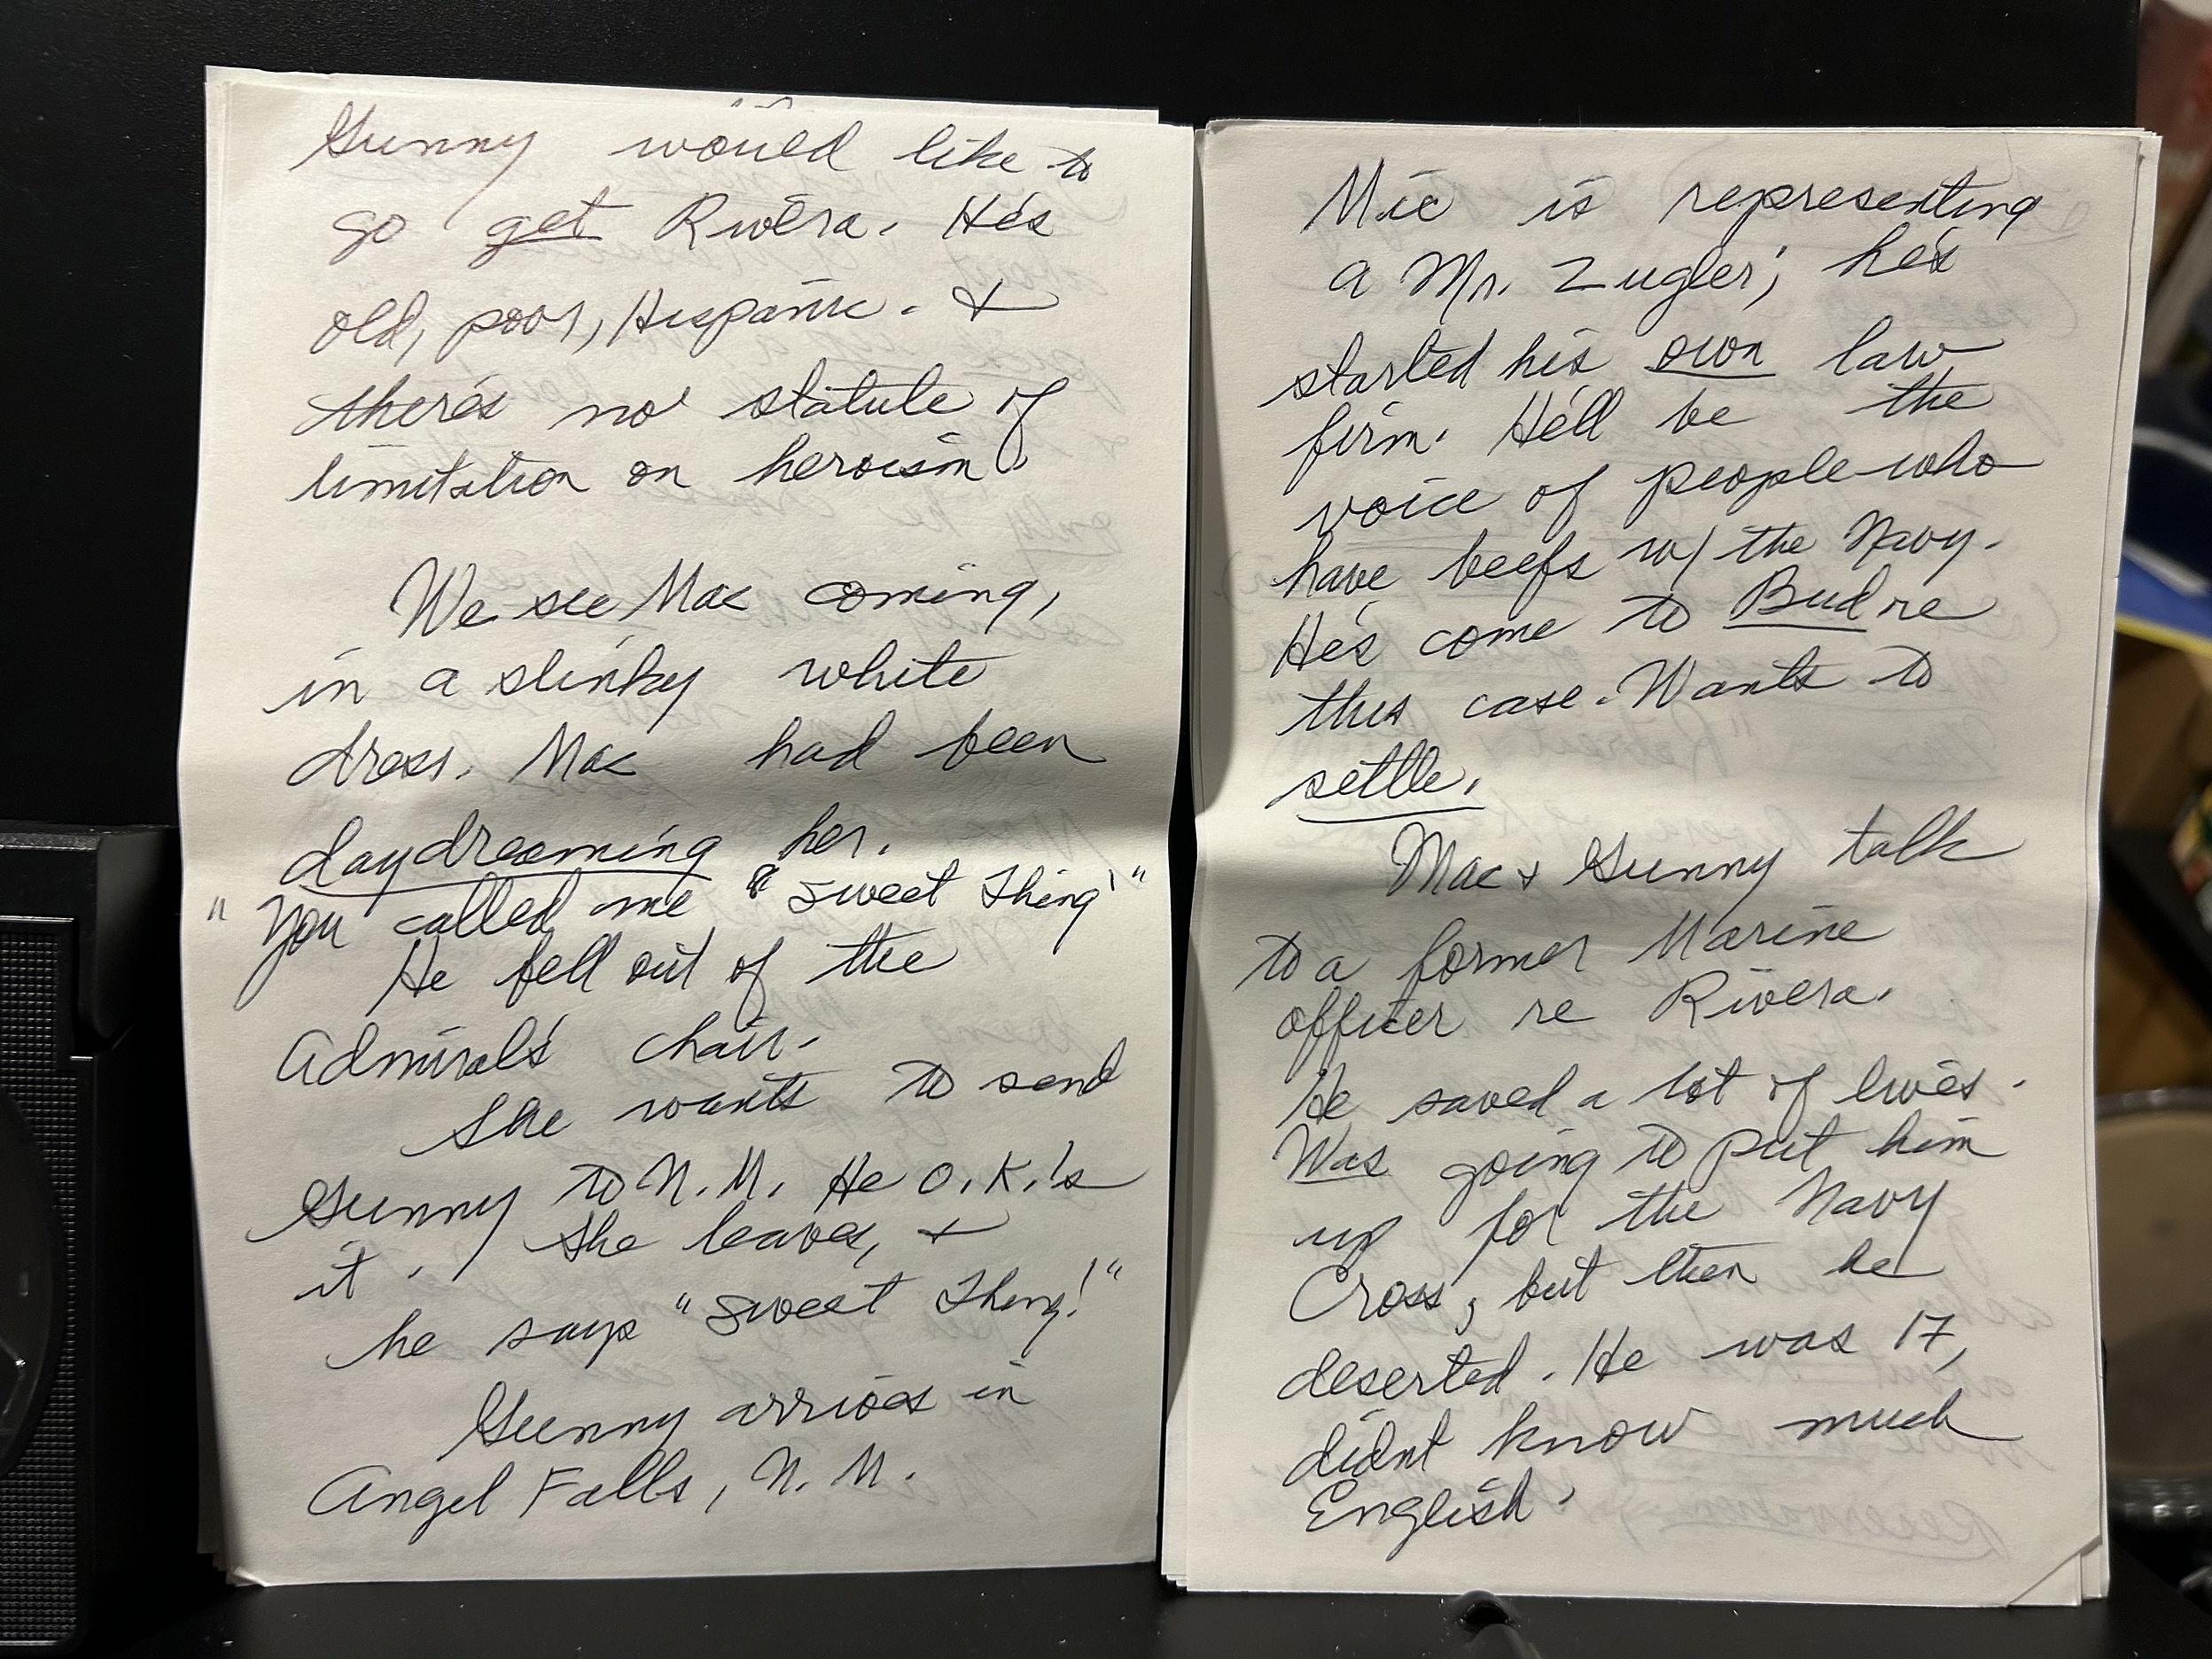 Gunny would like to
go get Rivera. He's
old, poor, Hispanic. &
there's no statute of
limitation on heroism
We see Mac coming,
in a slinky white
dress. Mac had been
daydreaming her.
"You called me "Sweet Thing'"
He fell out of the
Admiral's chair.
She wants to send
Gunny to N.M. He O.K.'s
it. She leaves, &
he says "Sweet Thing!"
Gunny arrives in
Angel Falls, N.M.
Mic is representing
a Mr. Zugler; he's
started his own law
firm. He'll be the
voice of people who
have beefs w/ the Navy.
He's come to Bud re
this case. Wants to
settle.
Mac & Gunny talk
to a former Marine
officer re Rivera.
He saved a lot of lives.
Was going to put him
up for the Navy
Cross, but then he
deserted. He was 17,
didn't know much
English.